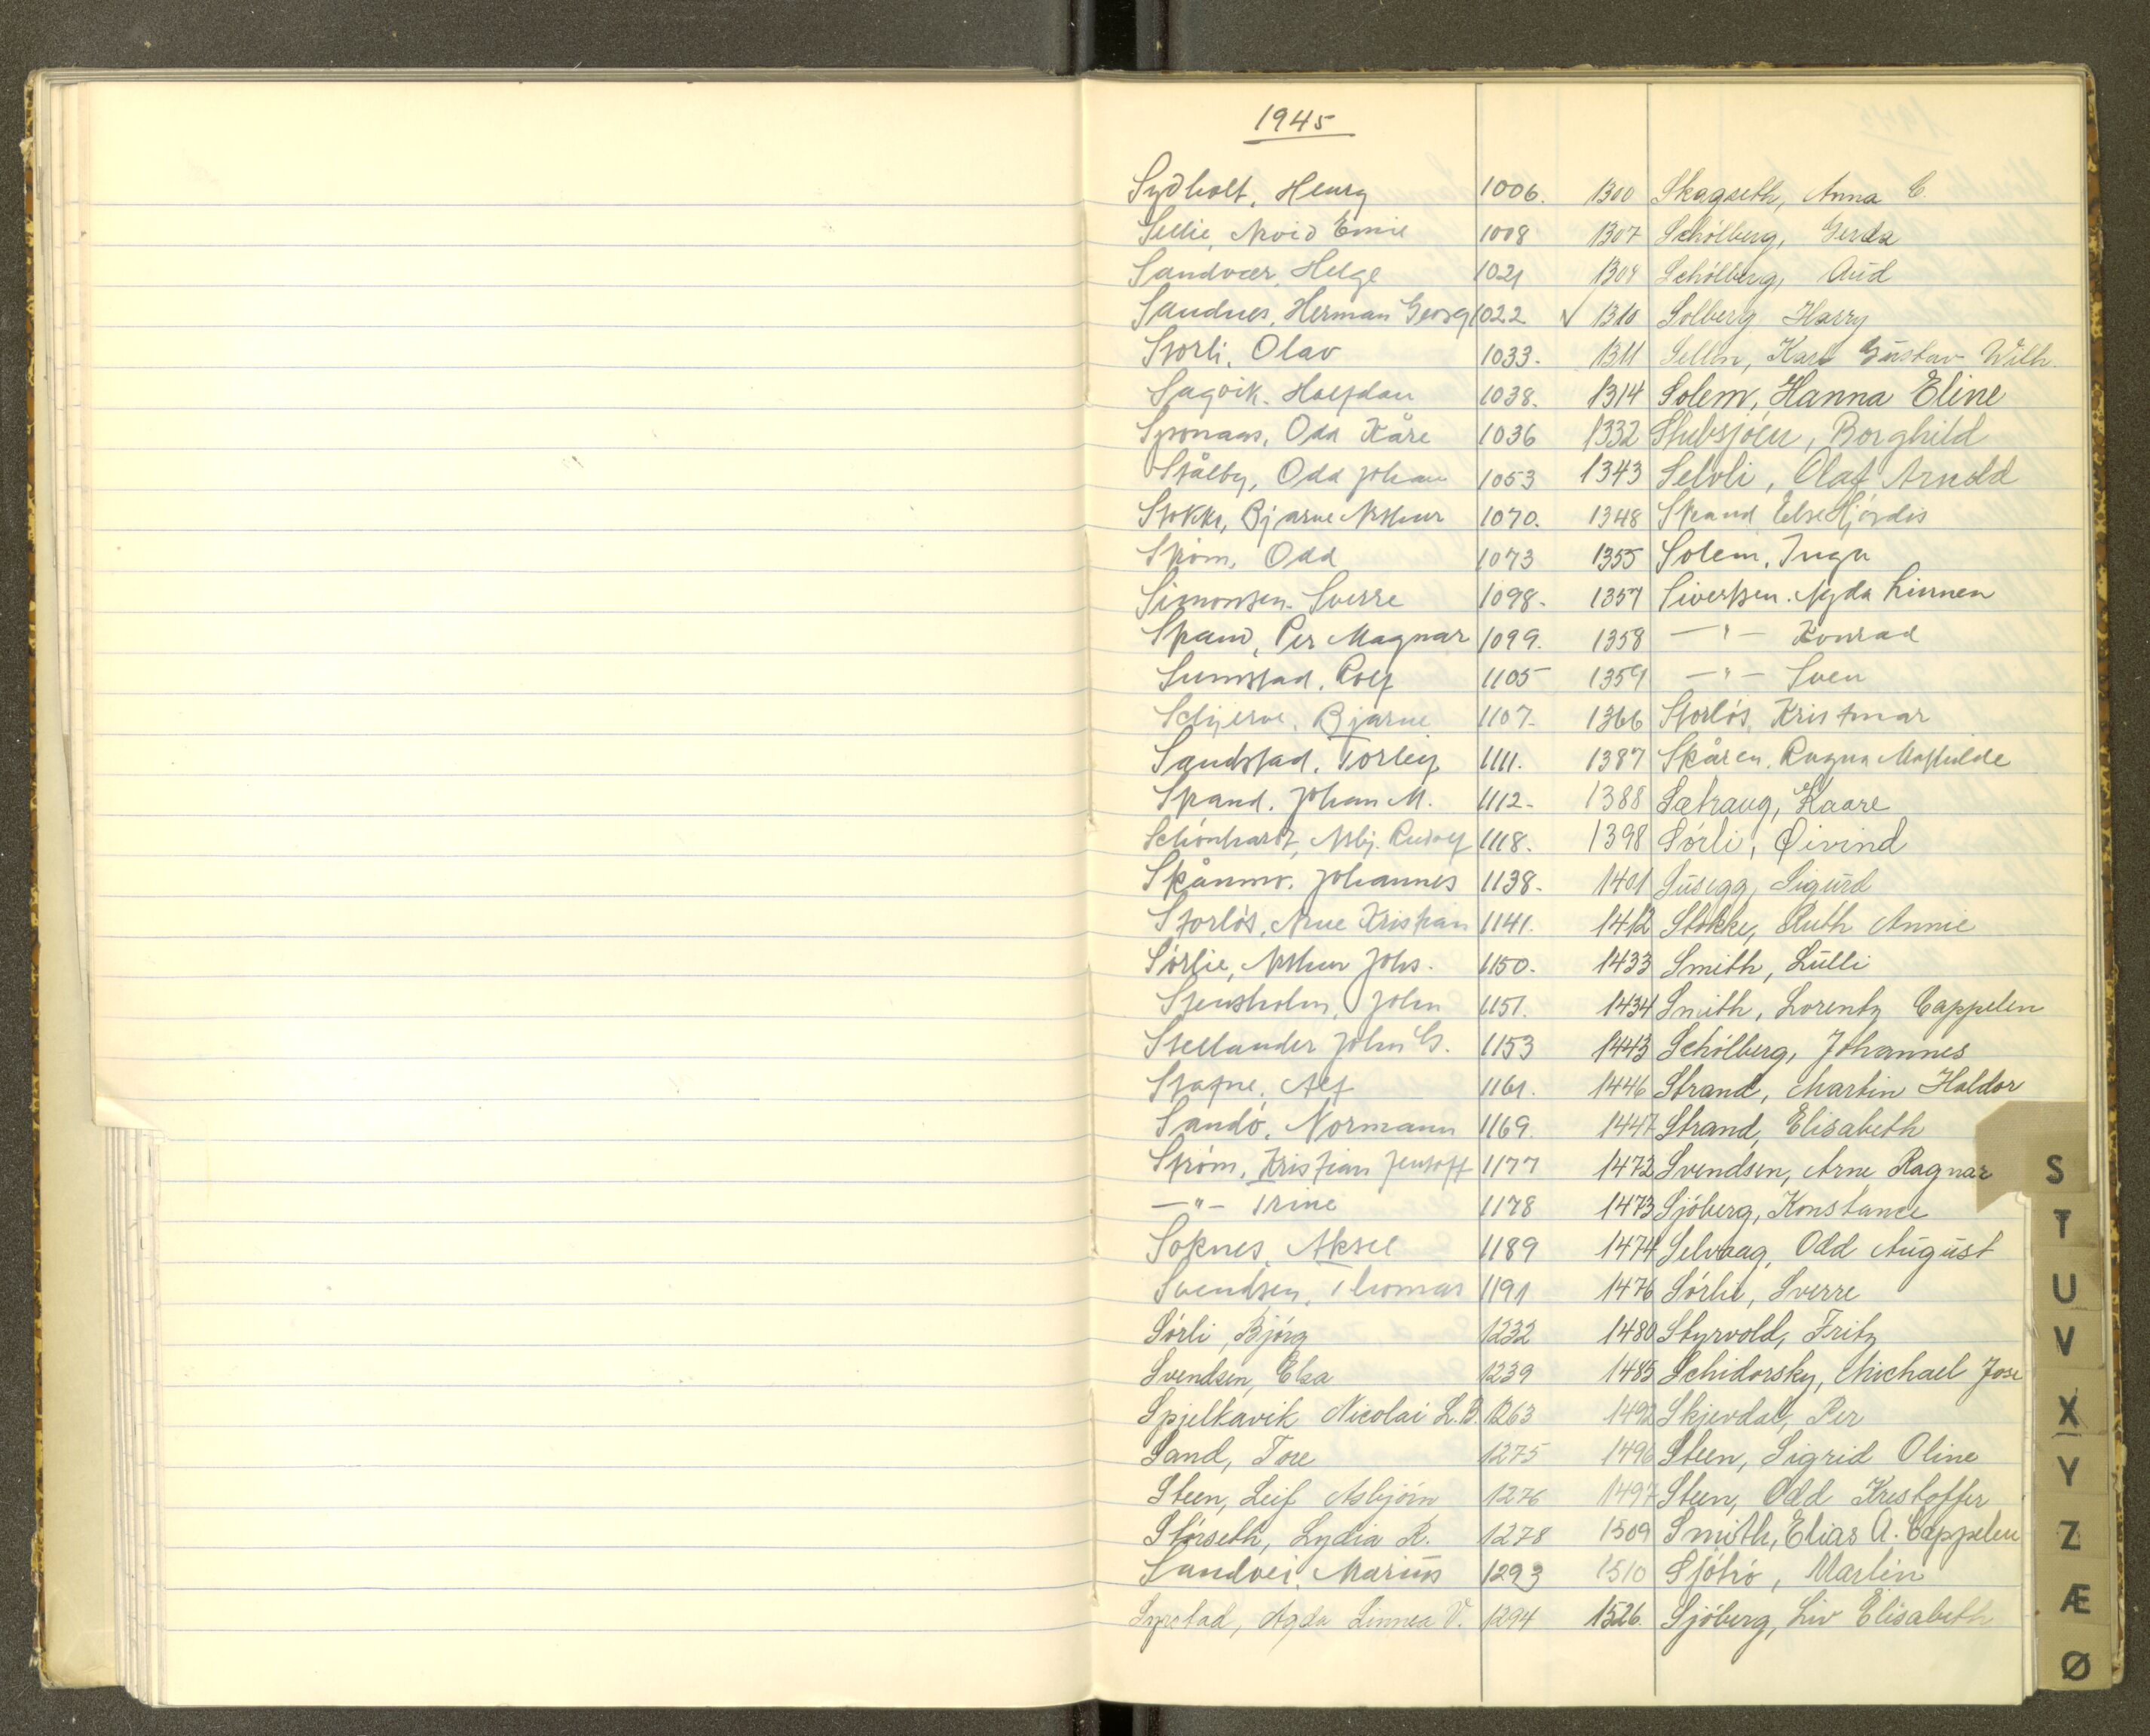 1945
Sydholt, Henry 1006. 1300 Skagseth, Anna C.
Sellie, Arvid Emil 1008 1307 Schölberg, Gerda
Sandvær, Helge 1021 1308 Schölberg, Aud
Sandnes, Herman Georg 1022 √ 1310 Solberg Harry
Storli, Olav 1033. 1311 Sellin, Karl Gustav Wilh.
Sagvik. Halfdan 1038. 1314 Solem, Hanna Eline
Odd Kåre 1036 1332 Stubsjöen, Borghild
Stålby, Odd Johan 1053 1343 Selvli, Olaf Arnold
Stokke, Bjarne Arthur 1070. 1348 Strand Else Hjördis
Ström, Odd 1073 1355 Solem, Inga
Simonsen. Sverre 1098. 1357 Sivertsen. Agda Linnea
Strand, Per Magnar 1099. 1358 —"— Konrad
Sumstad, Rolf 1105 1359 —"— Sven
Schjerve, Bjarne 1107. 1366 Storlös, Kristmar
Sandstad, Torleif 1111. 1387 Skåren, Ragna Mathilde
Strand, Johan M. 1112. 1388 Sætraug, Kaare
Schönhardt, Asbj. Rudolf 1118. 1398 Sörli, Øivind
Skånmo, Johannes 1138. 1401 Susegg, Sigurd
Storlös, Arne Kristian 1141. 1412 Stokke, Ruth Annie
Sørlie, Arthur Johs. 1150. 1433 Smith, Lulli
Stensholm, John 1151. 1434 Smith, Lorentz Cappelen
Stellander John G. 1153 1443 Schölberg, Johannes
Stafne, Alf 1161. 1446 Strand, Martin Haldor
Sandö, Normann 1169. 1447 Strand, Elisabeth
Ström, Kristian Jentoft 1177 1472 Svendsen, Arne Ragnar
—"— Trine 1178 1473 Sjöberg, Konstance
Soknes, Aksel 1189 1474 Selvaag, Odd August
Svendsen, Thomas 1191 1476 Sörli, Sverre
Sörli, Bjørg 1232 1480 Styrvold, Fritz
Svendsen, Elsa 1239 1485 Schidorsky, Michael Jose
Spjelkavik Nicolai L.B. 1263 1492 Skjevdal, Per
Sand, Tore 1275 1496 Steen, Sigrid Oline
Steen, Leif Asbjörn 1276 1497 Steen, Odd Kristoffer
Störseth, Lydia R. 1278 1509 Smith, Elias A. Cappelen
Sandvei, Marius 1293 1510 Martin
Syrstad, Agda Linnea V. 1294 1526. Sjöberg, Liv Elisabeth
S
T
U
V
X
Y
Z
Æ
Ø